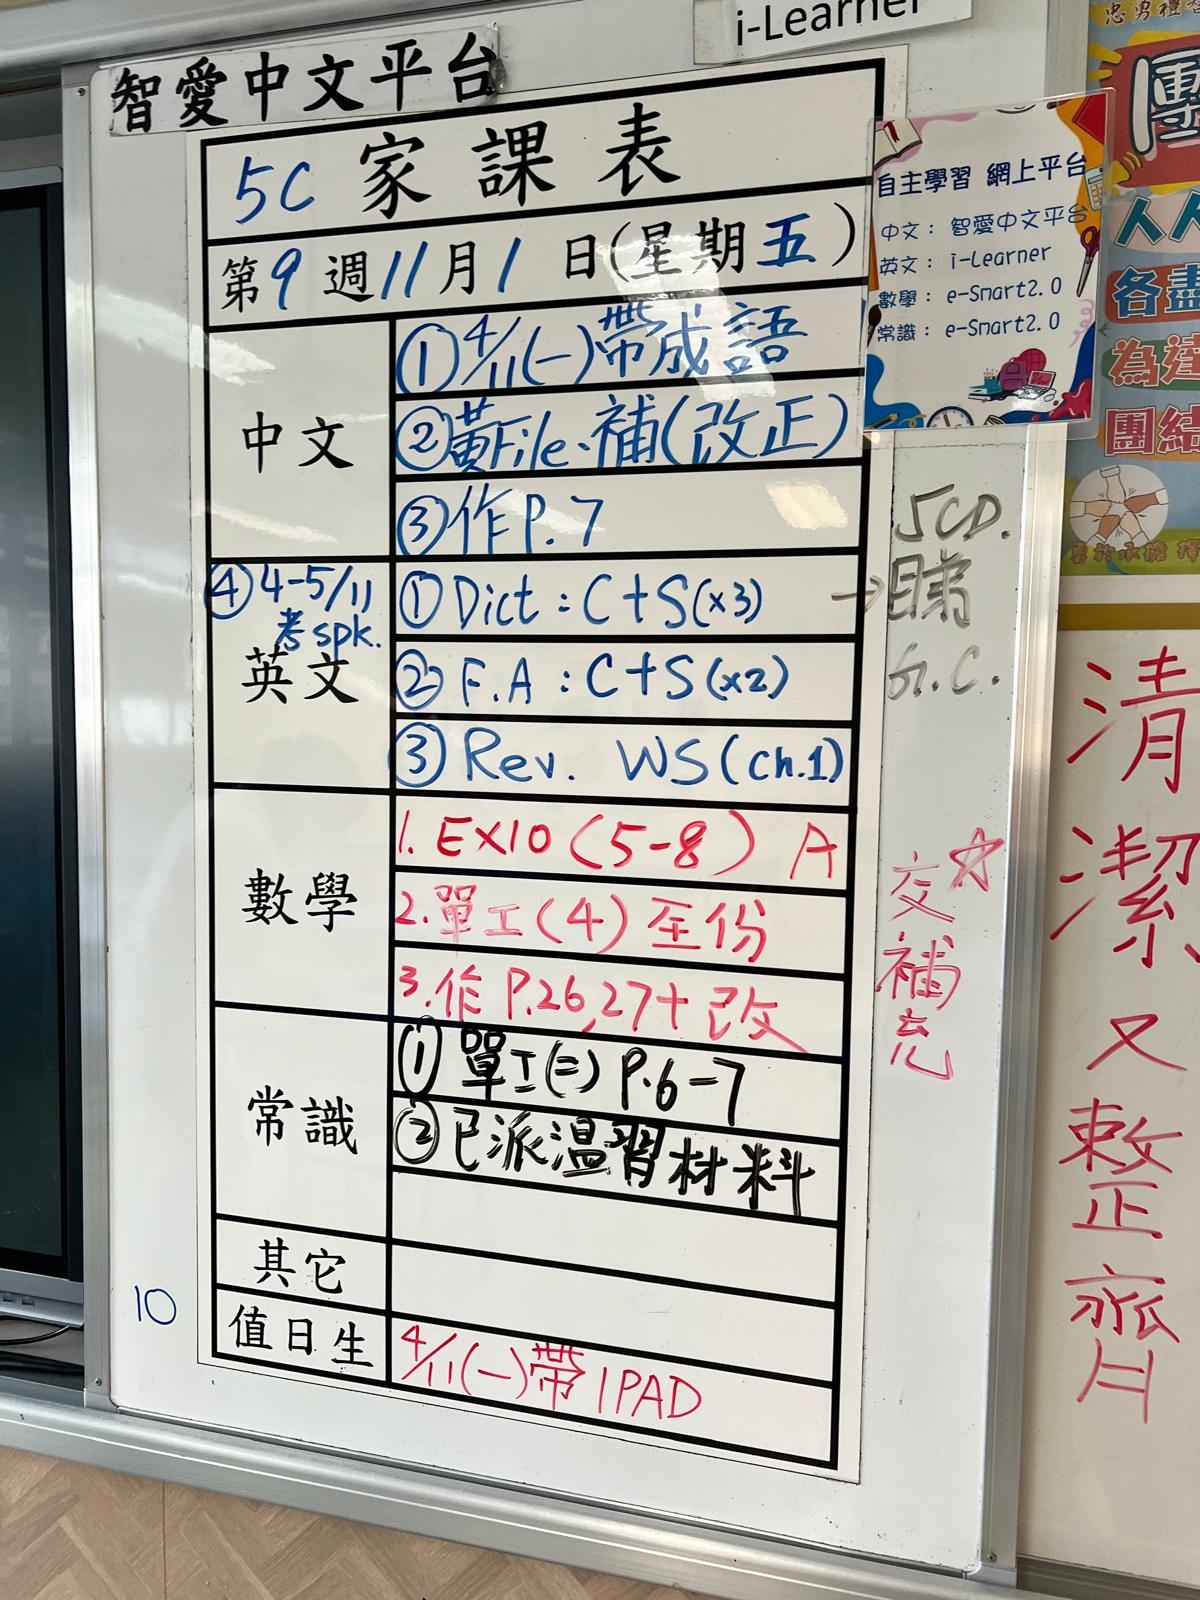 i-Learner
智愛中文平台
5C 家課表
第9週11月1日(星期五)
中文
①4/11(一)帶成語
②黃File.補(改正)
③作P.7
英文
①Dict:C+S(x3)
②F.A:C+S(x2)
③Rev. WS(ch.1)
④4-5/11
考spk.
數學
1.EX10(5-8) A
2.單工(4)全份
3.作P.26,27+改
常識
①單工(二)P.6-7
②已派溫習材料
其它
值日生
4/11(一)帶IPAD
10
自主學習 網上平台
中文：智愛中文平台
英文：i-Learner
數學：e-Smart2.0
常識：e-Smart2.0
5CD.
→睇
G.C.
交☆
補
充
忠勇禮
團
人人
各盡
為達
團結
勇於承擔
清
潔
又
整
齊